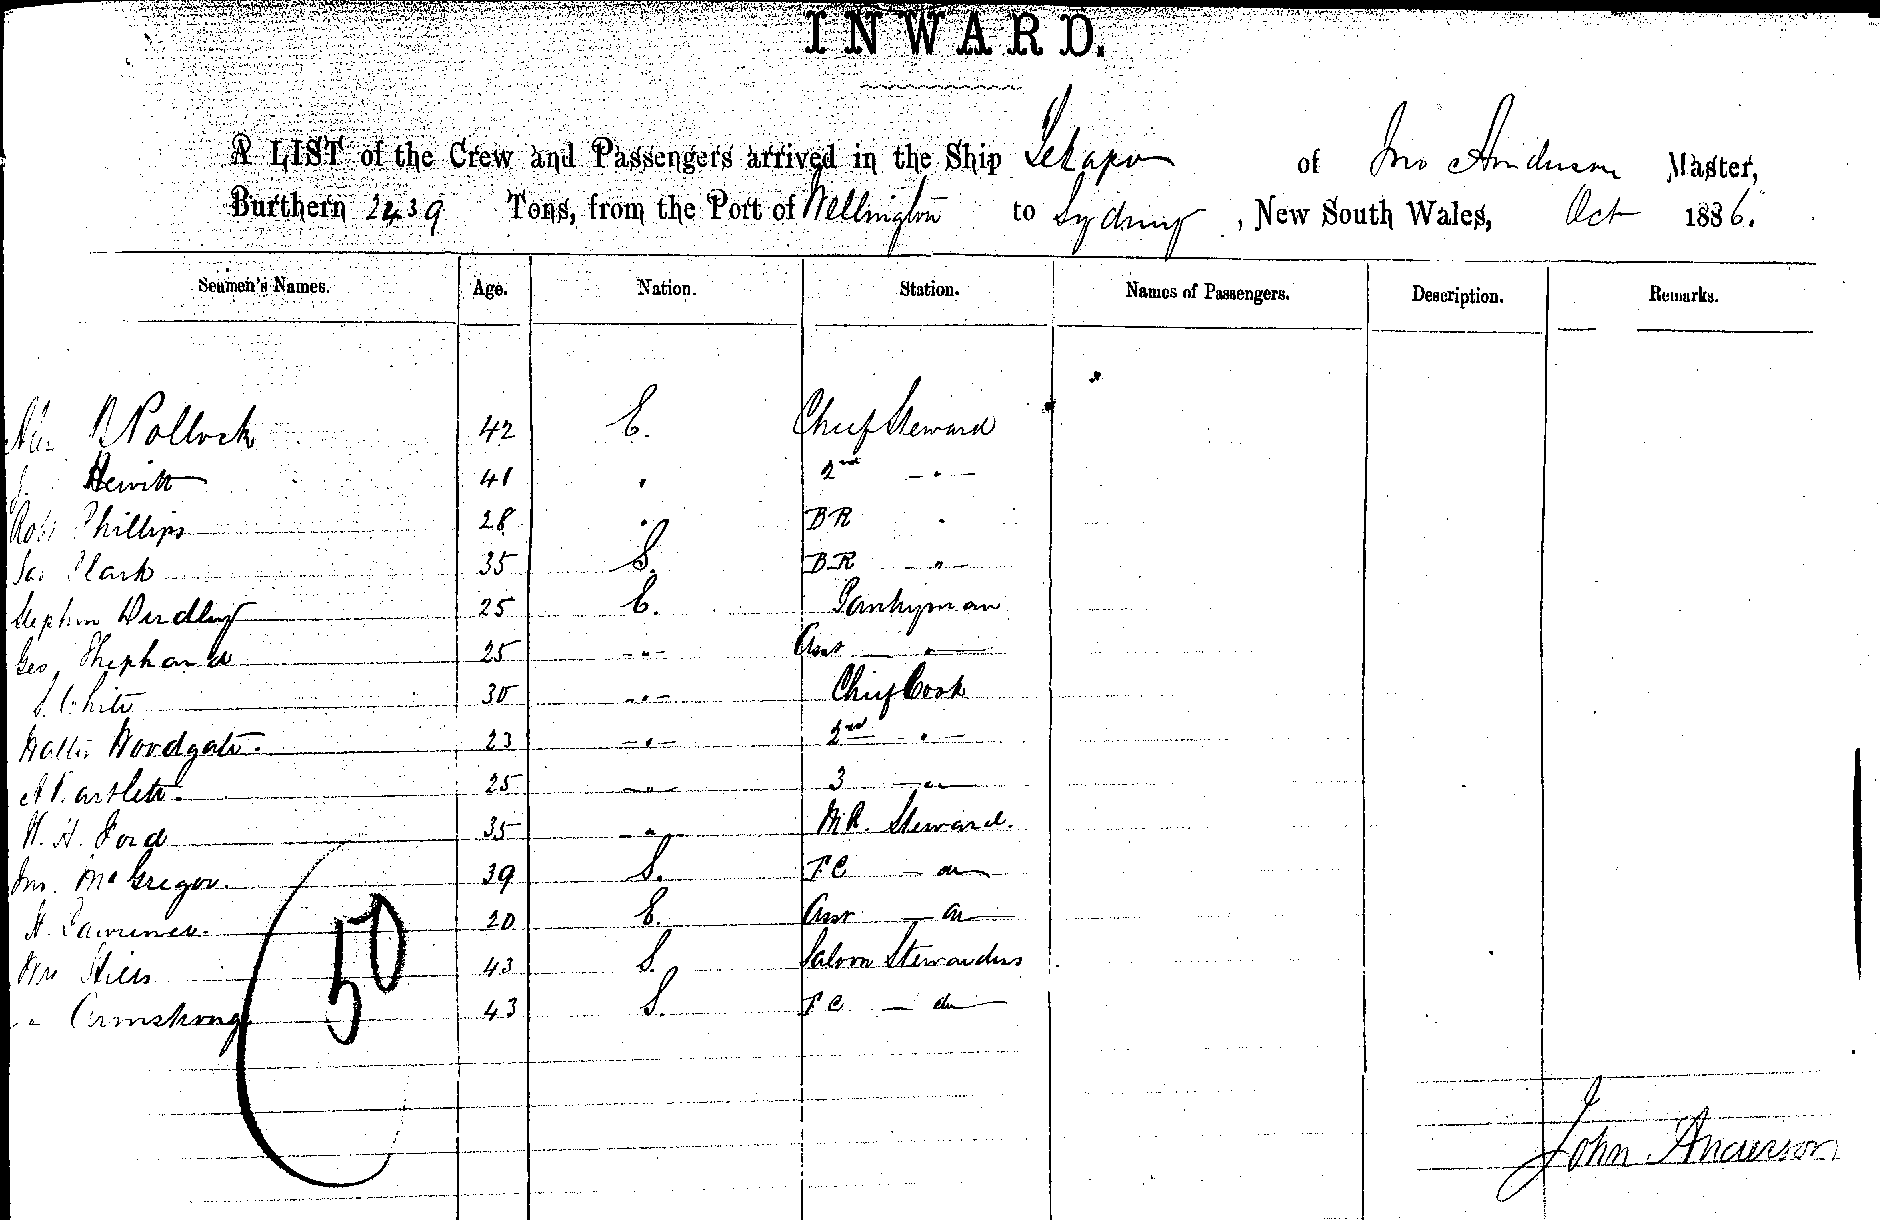 INWARD.
A LIST of the Crew and Passengers arrived in the Ship Tekapo of Jno Anderson Master,
Burthern 2439 Tons, from the Port of Wellington to Sydney, New South Wales, Oct 1886.
Seamen's Names. Age. Nation. Station. Names of Passengers. Description. Remarks.
Alex R Pollock 42 E. Chief Steward
J. Hewitt 41 " 2nd - " -
Robt Phillips 28 " BR "
Jas Clark 35 S. BR - " -
Stephen 25 E. Pantryman
Geo Shephard 25 - " - Asst - " -
S. White 30 - " - Chief Cook
Walter Woodgate. 23 - " - 2nd " -
A Bartlett. 25 - " - 3 - " -
W. H. Ford 35 - " - Steward.
Jno. McGregor. 39 S. FC - do -
H. Lawrence. 20 E. Asst - do -
Mrs 43 S. Saloon Stewardess
- " Armstrong 43 S. FC - do -
50
John Anderson